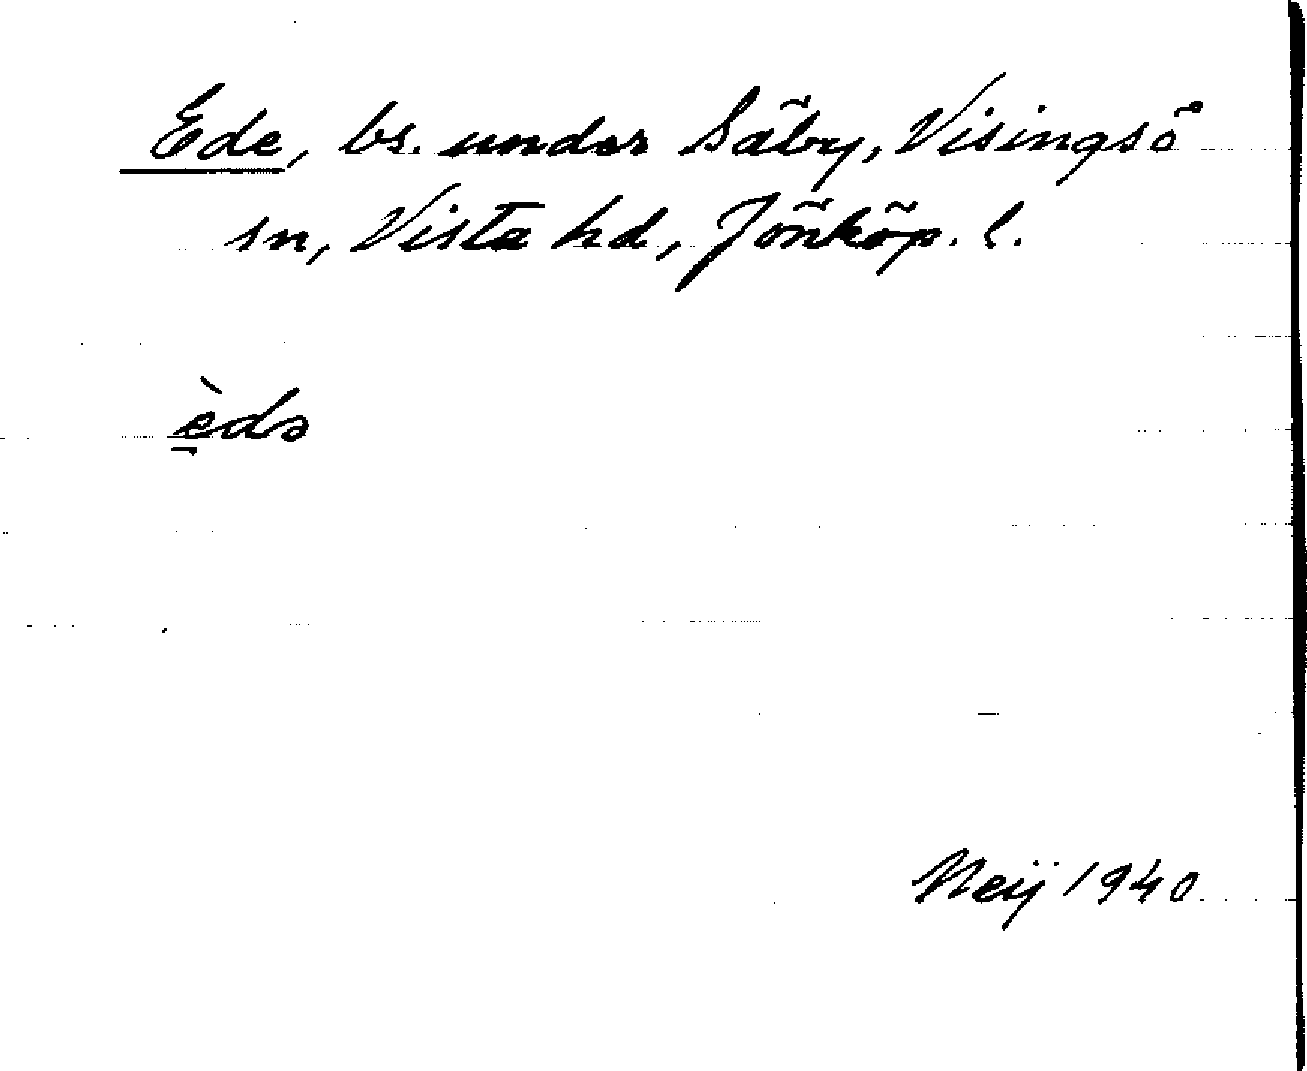 Ede, bs. under Säby, Visingsö
sn, Vista hd, Jönköp. l.
è̠də
Neij 1940